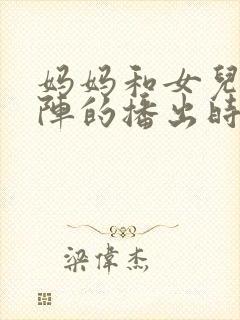 妈妈和女兒
陣的播出時
梁偉杰